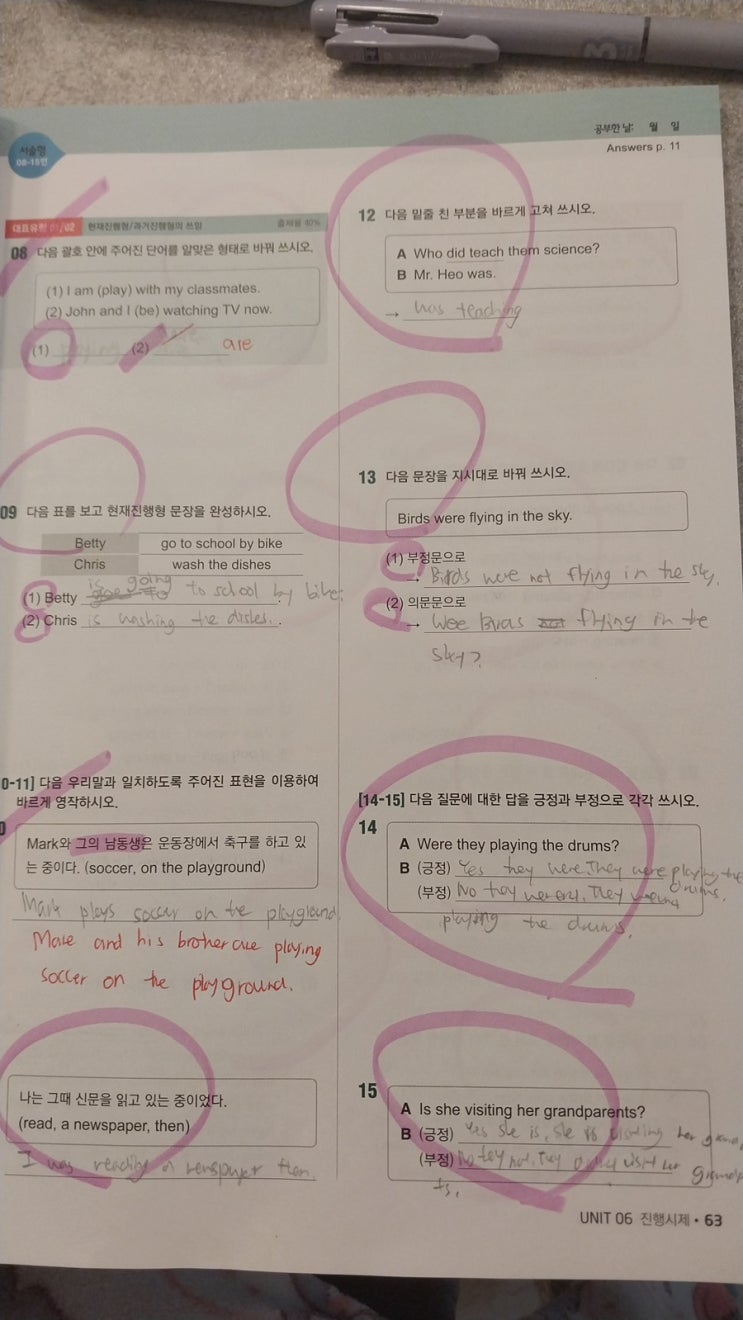 공부한 날: 월 일
Answers p. 11
서술형
08-15번
대표유형 01/02 현재진행형/과거진행형의 쓰임 출제율 40%
08 다음 괄호 안에 주어진 단어를 알맞은 형태로 바꿔 쓰시오.
(1) I am (play) with my classmates.
(2) John and I (be) watching TV now.
(1) playing (2) are
09 다음 표를 보고 현재진행형 문장을 완성하시오.
Betty go to school by bike
Chris wash the dishes
(1) Betty is going to school by bike.
(2) Chris is washing the dishes.
0-11] 다음 우리말과 일치하도록 주어진 표현을 이용하여
바르게 영작하시오.
0
Mark와 그의 남동생은 운동장에서 축구를 하고 있
는 중이다. (soccer, on the playground)
Mark plays soccer on the playground.
Mare and his brother are playing
soccer on the playground.
나는 그때 신문을 읽고 있는 중이었다.
(read, a newspaper, then)
I was reading a newspaper then.
12 다음 밑줄 친 부분을 바르게 고쳐 쓰시오.
A Who did teach them science?
B Mr. Heo was.
→ was teaching
13 다음 문장을 지시대로 바꿔 쓰시오.
Birds were flying in the sky.
(1) 부정문으로
→ Birds were not flying in the sky.
(2) 의문문으로
→ Wee Birds flying in the
sky?
[14-15] 다음 질문에 대한 답을 긍정과 부정으로 각각 쓰시오.
14
A Were they playing the drums?
B (긍정) Yes they were. They were playing the
drums.
(부정) No they weren't. They
playing the drums.
15
A Is she visiting her grandparents?
B (긍정) Yes she is, she is visiting her
(부정) No they not. They visit her
ts.
UNIT 06 진행시제 • 63